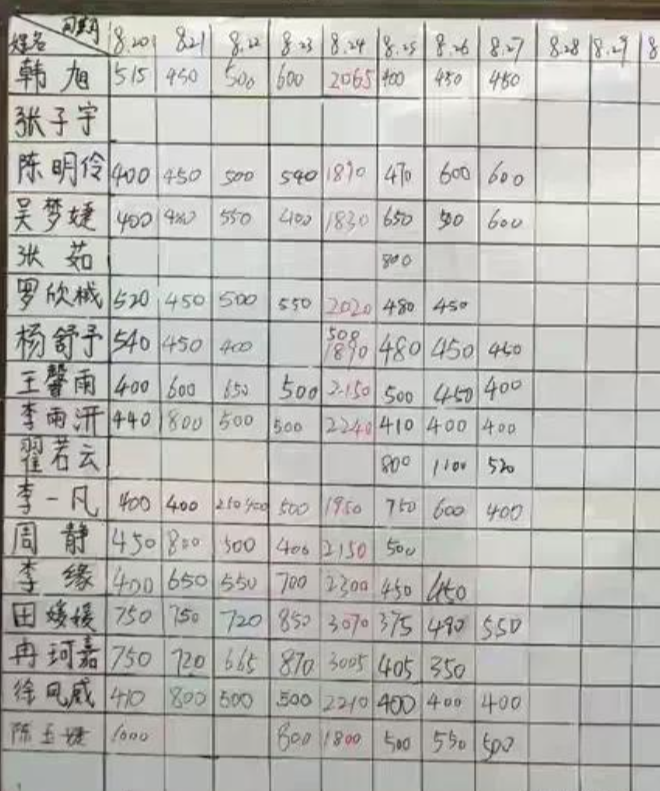 姓名 日期 8.20 8.21 8.22 8.23 8.24 8.25 8.26 8.27 8.28 8.29 8
韩旭 515 450 500 600 2065 400 450 450
张子宇
陈明伶 400 450 500 540 1890 470 600 600
吴梦婕 400 480 550 400 1830 650 500 600
张茹 800
罗欣械 520 450 500 550 2020 480 450
杨舒予 540 450 400 500 1890 480 450 450
王馨雨 400 600 650 500 2150 500 450 400
李雨汧 440 800 500 500 2240 410 400 400
翟若云 800 1100 520
李一凡 400 400 250 400 500 1950 750 600 400
周静 450 800 500 400 2150 500
李缘 400 650 550 700 2300 450 450
田媛媛 750 750 720 850 3070 375 490 550
冉珂嘉 750 720 665 870 3005 405 350
徐凤威 410 800 500 500 2210 400 400 400
陈玉婕 1000 800 1800 500 550 500